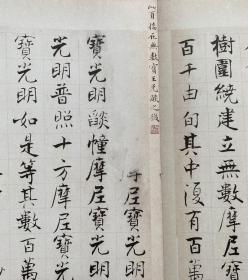 樹圍繞建立無數摩
百千由旬其中復有百萬
此頁接在無數寶王光燄之後
尼寶光明
寶光明燄幢摩尼寶光明
光明普照十方摩尼寶光
寶光明如是等其數百萬